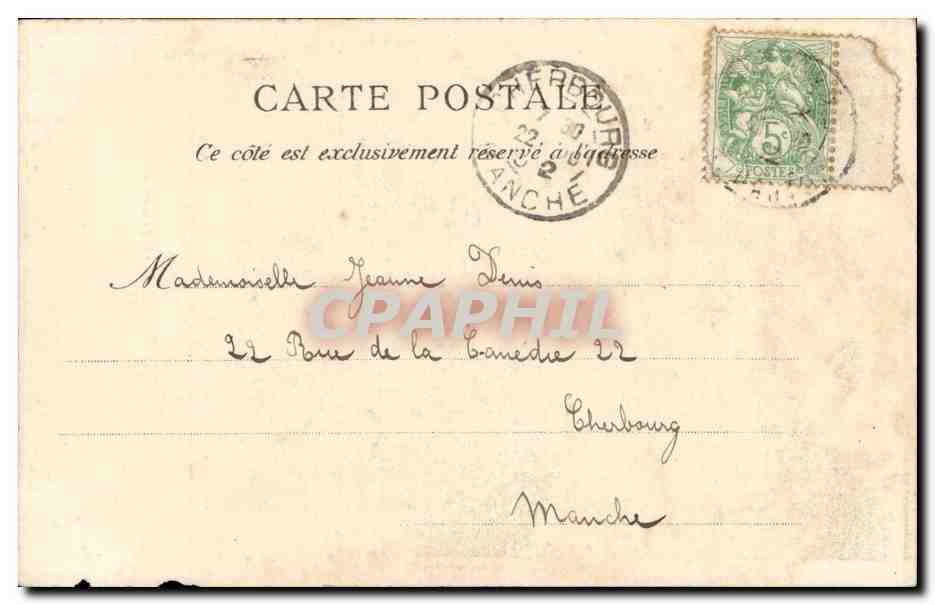 CARTE POSTALE
Ce côté est exclusivement réservé à l'adresse
CHERBOURG
7 30
22
2
MANCHE
5c
POSTES
Mademoiselle Jeanne Denis
CPAPHIL
22 Rue de la 22
Cherbourg
Manche